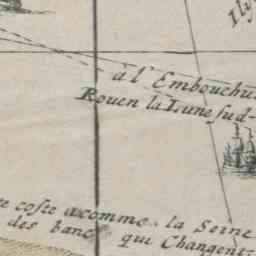 à l'Embouchu
Rouen la Lune sud-
coste acomme la Seine
des banc que Changent